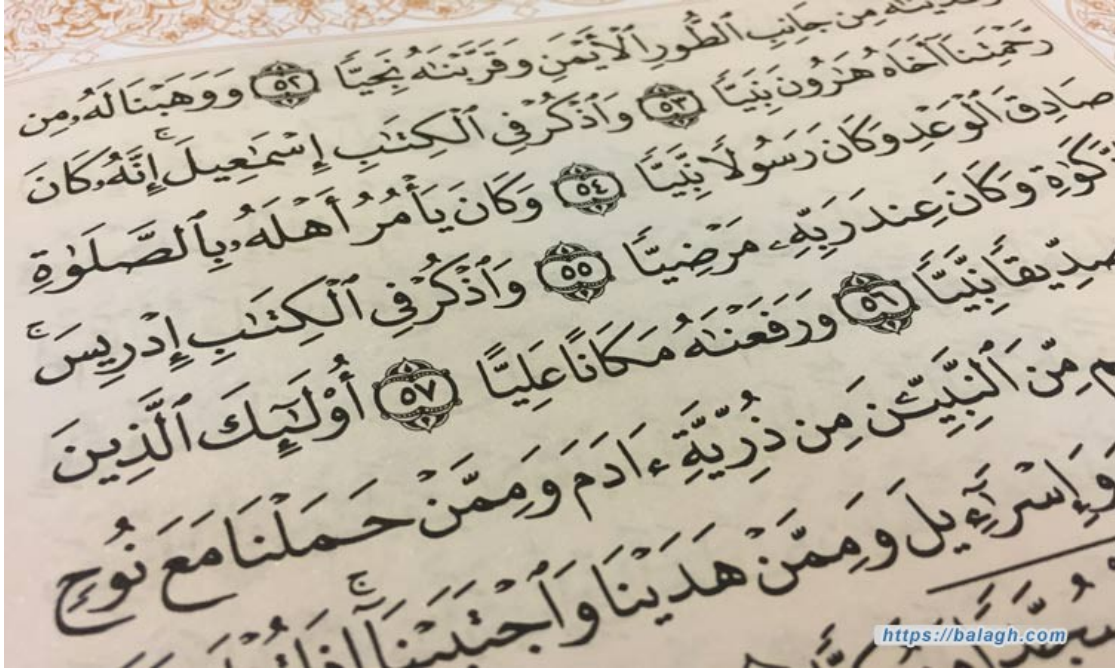 مِن جَانِبِ ٱلطُّورِ ٱلْأَيْمَنِ وَقَرَّبْنَٰهُ نَجِيًّا ٥٢ وَوَهَبْنَا لَهُۥ مِن
رَّحْمَتِنَآ أَخَاهُ هَٰرُونَ نَبِيًّا ٥٣ وَٱذْكُرْ فِى ٱلْكِتَٰبِ إِسْمَٰعِيلَ ۚ إِنَّهُۥ كَانَ
صَادِقَ ٱلْوَعْدِ وَكَانَ رَسُولًا نَّبِيًّا ٥٤ وَكَانَ يَأْمُرُ أَهْلَهُۥ بِٱلصَّلَوٰةِ
وَكَانَ عِندَ رَبِّهِۦ مَرْضِيًّا ٥٥ وَٱذْكُرْ فِى ٱلْكِتَٰبِ إِدْرِيسَ ۚ
صِدِّيقًا نَّبِيًّا ٥٦ وَرَفَعْنَٰهُ مَكَانًا عَلِيًّا ٥٧ أُو۟لَٰٓئِكَ ٱلَّذِينَ
مِّنَ ٱلنَّبِيِّـۧنَ مِن ذُرِّيَّةِ ءَادَمَ وَمِمَّنْ حَمَلْنَا مَعَ نُوحٍ
وَإِسْرَٰٓءِيلَ وَمِمَّنْ هَدَيْنَا وَٱجْتَبَيْنَآ ۚ إِذَا
سُجَّدًا
https://balagh.com